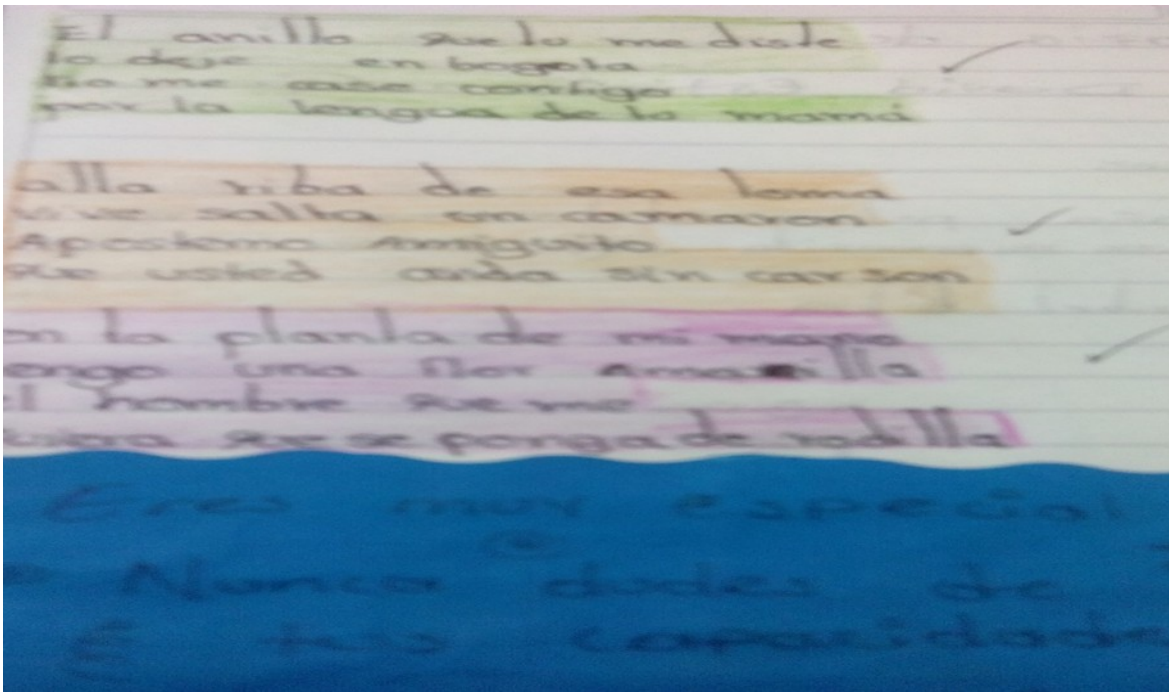 El anillo que tu me diste
lo deje en bogota
no me case contigo
por la lengua de tu mamá
alla riba de esa loma
vive salta un camaron
Apostemo Amiguito
que usted anda sin carson
n la planta de mi mano
engo una flor Amarilla
l hombre que me
que se ponga de rodilla
Eres muy especial
Nunca dudes de
tus capacidade